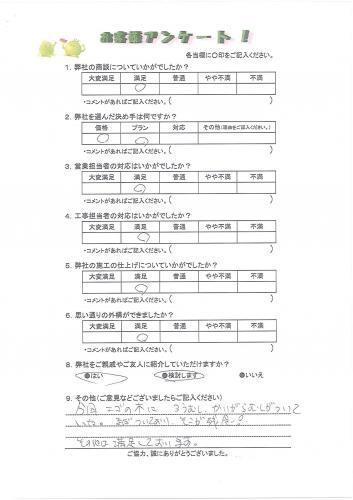 お客様アンケート！
各当欄に○印をご記入ください。
1. 弊社の商談についていかがでしたか？
大変満足 満足 普通 やや不満 不満
・コメントがあればご記入ください。(
2. 弊社を選んだ決め手は何ですか？
価格 プラン 対応 その他（理由をご記入ください。）
・コメントがあればご記入ください。(
3. 営業担当者の対応はいかがでしたか？
大変満足 満足 普通 やや不満 不満
・コメントがあればご記入ください。(
4. 工事担当者の対応はいかがでしたか？
大変満足 満足 普通 やや不満 不満
・コメントがあればご記入ください。(
5. 弊社の施工の仕上げについていかがでしたか？
大変満足 満足 普通 やや不満 不満
・コメントがあればご記入ください。(
6. 思い通りの外構ができましたか？
大変満足 満足 普通 やや不満 不満
・コメントがあればご記入ください。(
8. 弊社をご親戚やご友人に紹介していただけますか？
●はい ●検討します ●いいえ
9. その他(ご意見などございましたらご記入ください)
エゴの木に かいがらむしがついて
いた。 そこが残念？
その他は満足しております。
ご協力、誠にありがとうございました。